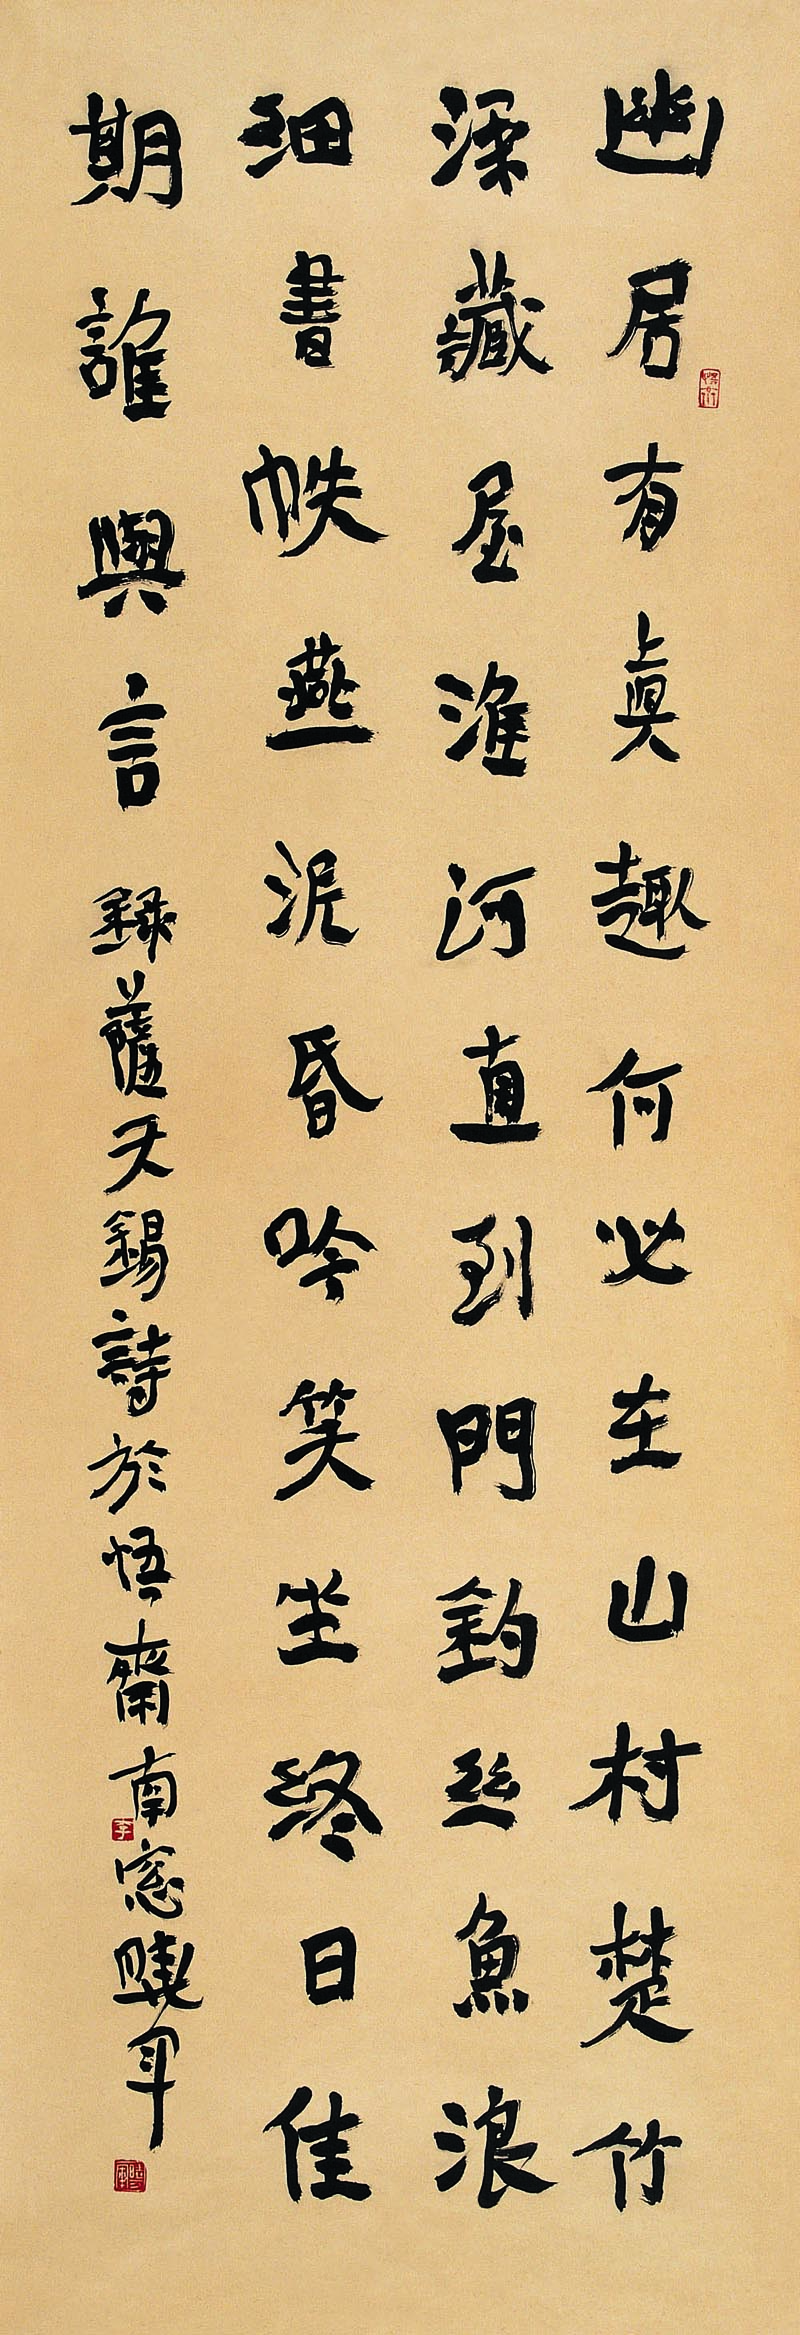 幽居有真趣何必在山村楚竹
深藏屋淮河直到門釣絲魚浪
細書帙燕泥昏吟笑坐終日佳
期誰與言錄薩天錫詩於悟齋南窓曉軍
李